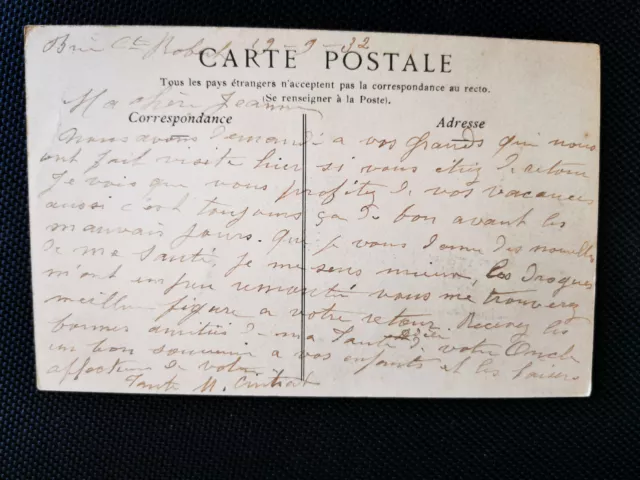 Brie Cte Robert 19-9-32
CARTE POSTALE
Tous les pays étrangers n'acceptent pas la correspondance au recto.
(Se renseigner à la Poste).
Ma chère Jeanne
Correspondance
Adresse
Nous avons demandé a vos grands qui nous
ont fait visite hier si vous étiez de retour
Je vois que vous profitez de vos vacances
aussi c'est toujours ça de bon avant les
mauvais jours. que je vous donne des nouvelles
de ma santé je me sens mieux, les drogues
m'ont un peu remonté vous me trouverez
meilleure figure a votre retour. Recevez les
bonnes amitiés de votre Oncle
un bon souvenir a vos enfants et les baisers
affectueux de votre
Tante M.